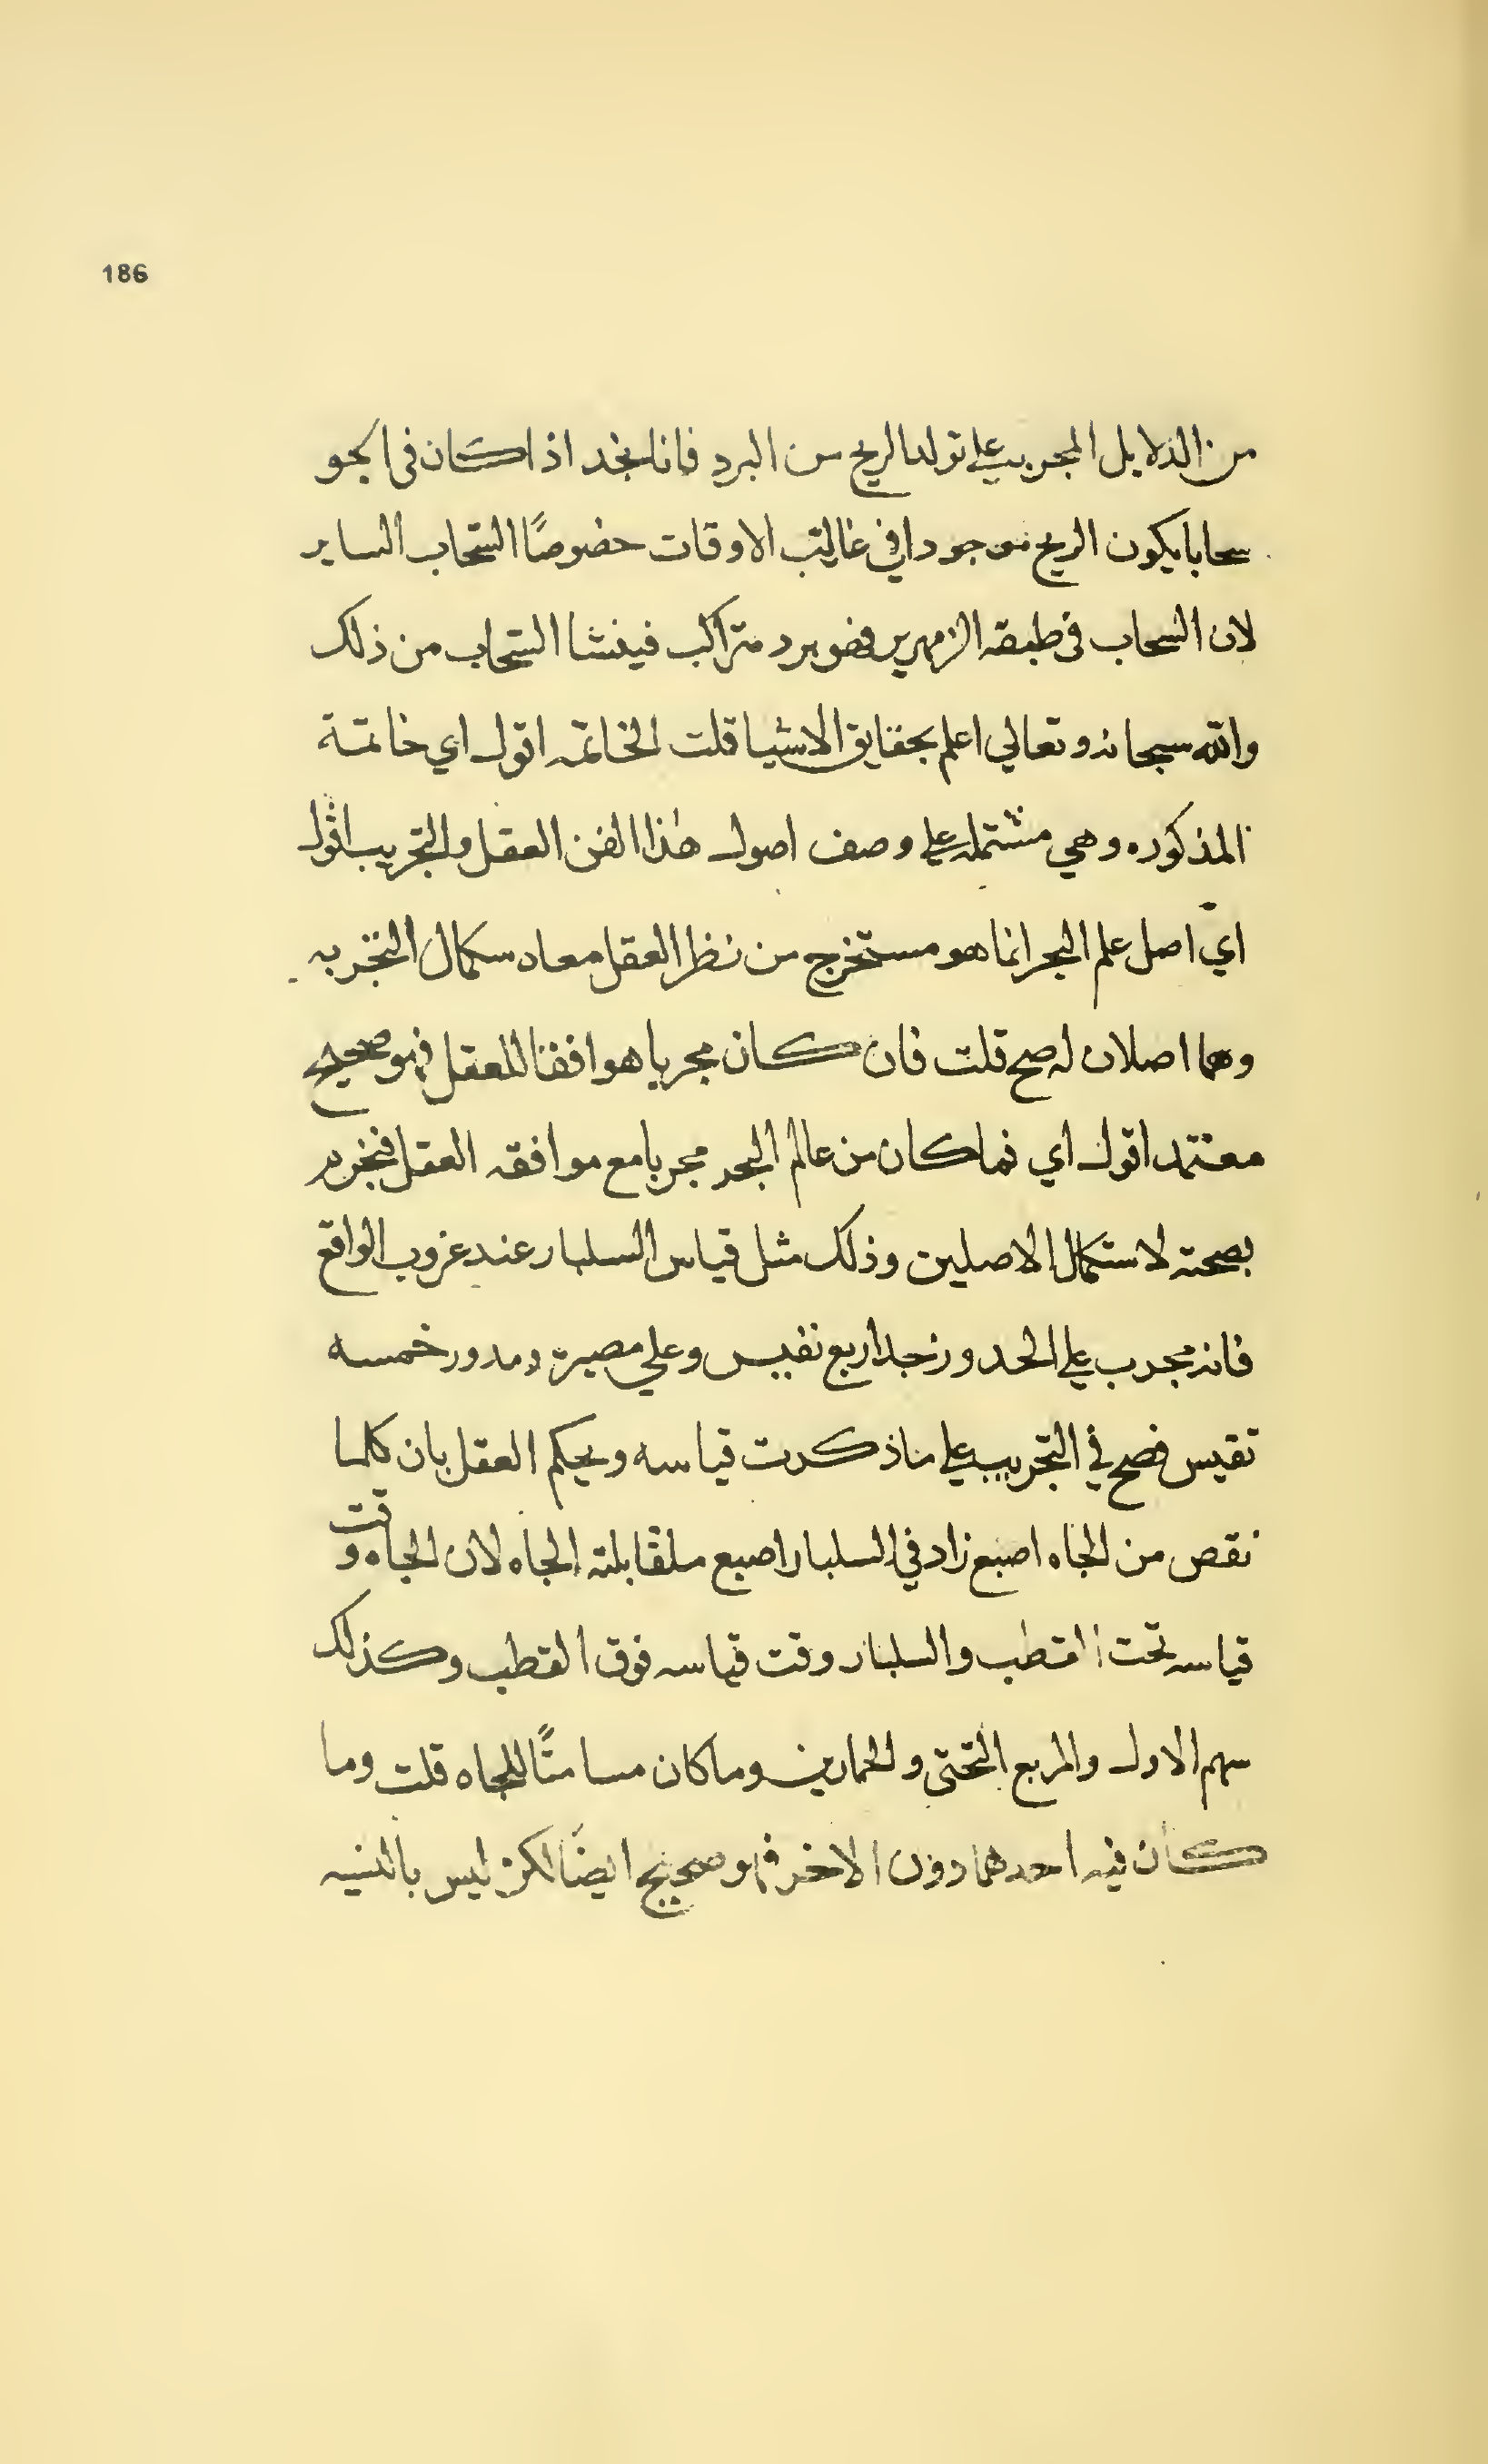 186
من الدلايل المجربيه علي تولد الريح من البرد فانا نجد اذا كان في الجو
سحابا يكون الريح موجودا في غالب الاوقات خضوصًا السحاب الساير
لان السحاب في طبقه الزمهرير فهو برد متراكب فينشا السحاب من ذلك
والله سبحانه وتعالي اعلم بحقايق الاشيا قلت الخاتمه اقول اي خاتمة
المذكوره وهي مشتمله علي وصف اصول هذا الفن العقل والتجريب اقول
اي اصل علم البحر انما هو مستخرج من نظر العقل معاد سكمال التجربه
وهما اصلان له صح قلت فان كان مجربا هوافقا للعقل فهو صحيح
معتمد اقول اي فما كان من عالم البحر مجربا مع موافقه العقل فنجزم
بصحته لاستكمال الاصلين وذلك مثل قياس السلبار عند غروب الواقع
فانه مجرب علي الحد ورنجد اربع نفيس وعلي مصيرة ومدور خمسه
نفيس فصح في التجريب علي ماذكرت قياسه ويحكم العقل بان كلما
نقص من الجاه اصبع زاد في السلبار اصبع ملقابلته الجاه لان الجاه وقت
قياسه تحت القطب والسلبار وقت قياسه فوق القطب وكذلك
سهم الاول والمربع التحتي والحمارين وماكان مسامتًا للجاه قلت وما
كان فيه احدهما دون الاخر فهو صحيح ايضًا لكن ليس بالنسبه